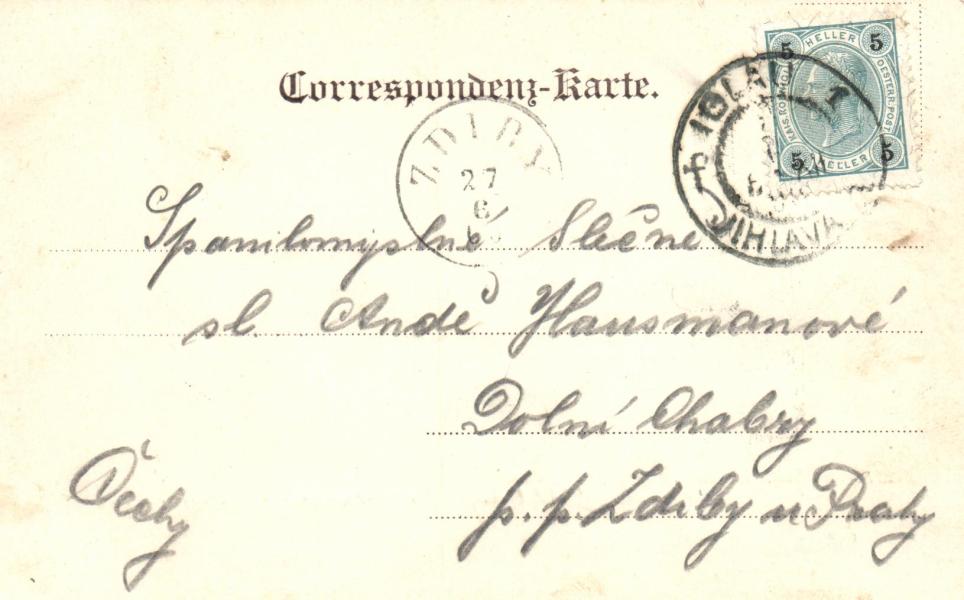 Correspondenz-Karte.
5 HELLER 5
KAIS. KÖNIGL. OESTERR. POST.
5 HELLER 5
IGLAU 1
JIHLAVA
ZDIBY
27
6
Slečně
sl. Hausmanové
Dolní Chabry
p. p. Zdiby u Prahy
Čechy